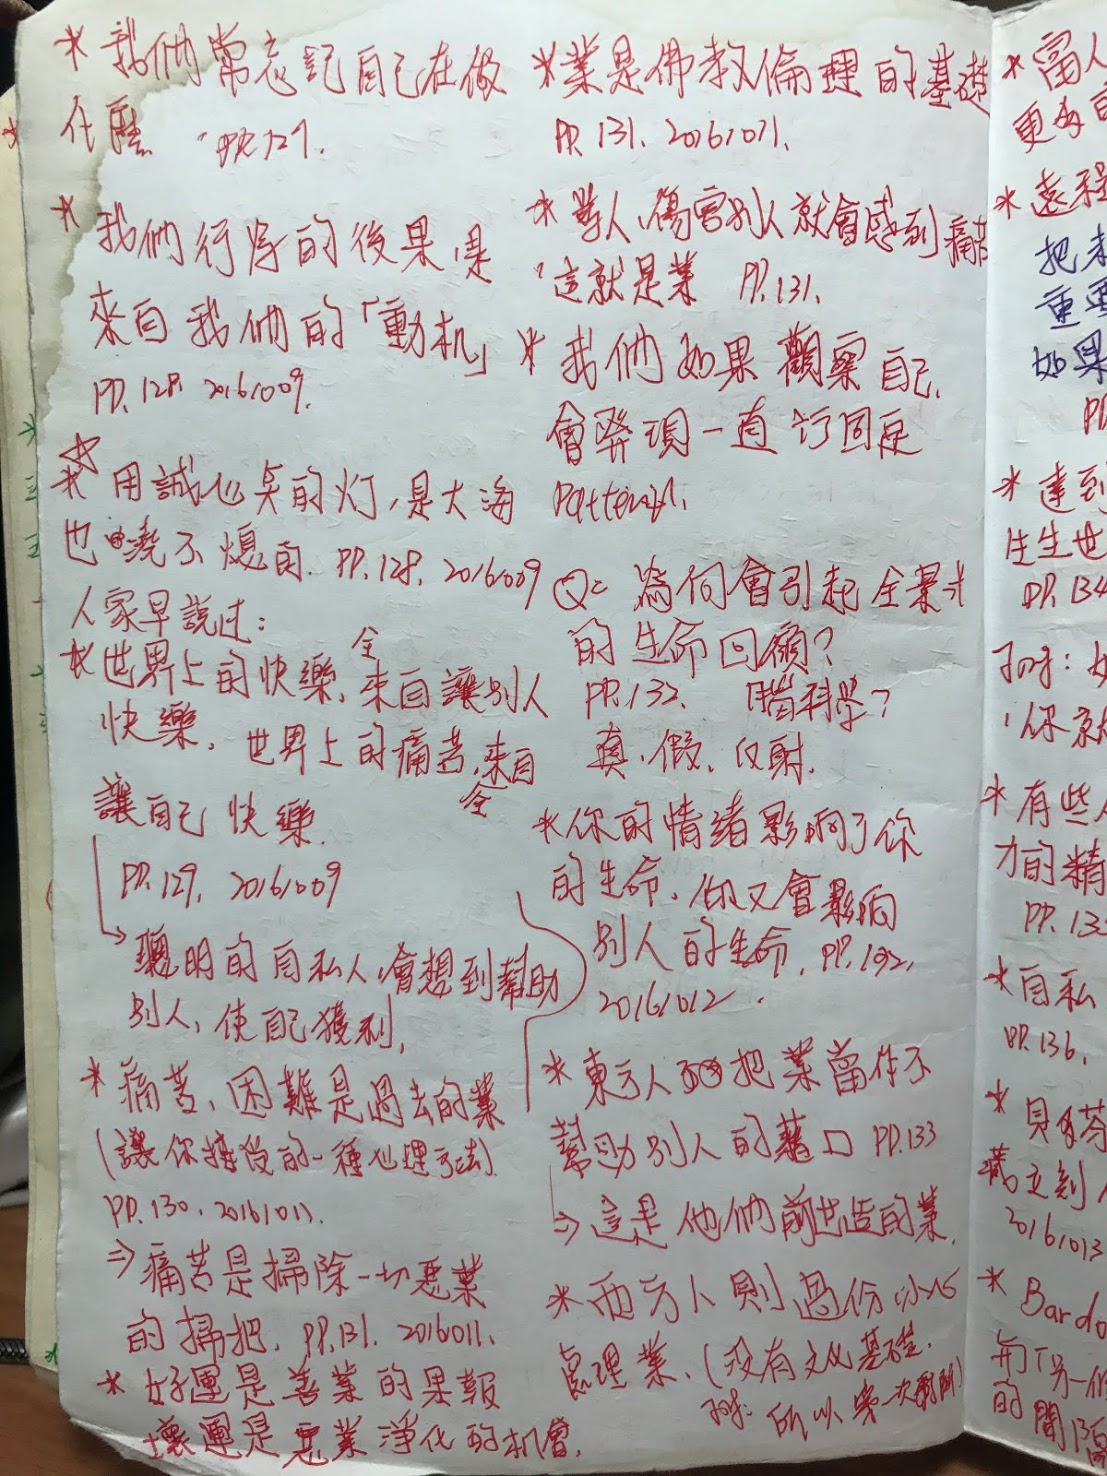 * 我們常忘記自己在做
什麼 PP.127.
* 我們行為的後果,是
來自我們的「動机」
PP.128. 20161009.
☆
* 用誠心点的灯,是大海
也澆不熄的. PP.128. 20161009
人家早說过:
* 世界上的快樂,全來自讓別人
快樂, 世界上的痛苦,全來自
讓自己快樂.
PP.129, 20161009
→ 聰明的自私人,會想到幫助
別人,使自己獲利,
* 痛苦、困難是過去的業
(讓你接受的一種心理方法)
PP.130, 20161011.
⇒ 痛苦是掃除一切惡業
的掃把. PP.131. 2016011.
* 好運是善業的果報
壞運是惡業淨化的机會.
* 業是佛教倫理的基礎
PP.131. 20161011.
* 等人傷害別人就會感到痛苦
這就是業 PP.131.
* 我們如果觀察自己,
會發現一直
Q: 為何會引起全景式
的生命回顧?
PP.132. 腦科學?
真、假、反射.
* 你的情緒影響了你
的生命, 但又會影响
別人的生命. PP.132,
20161012.
* 東方人 把業當作不
幫助別人的藉口 PP.133
⇒ 這是他們前世造的業.
* 西方人則過份小心
處理業. (沒有文化基礎.
所以第一次
* 富人
更
* 遠程
把未
重要
如果
PP
* 達到
生生世
PP.134
你就
* 有些人
才的精
PP.13
* 自私
PP.136.
* 貝
藏立刻
20161013
* Bardo
的